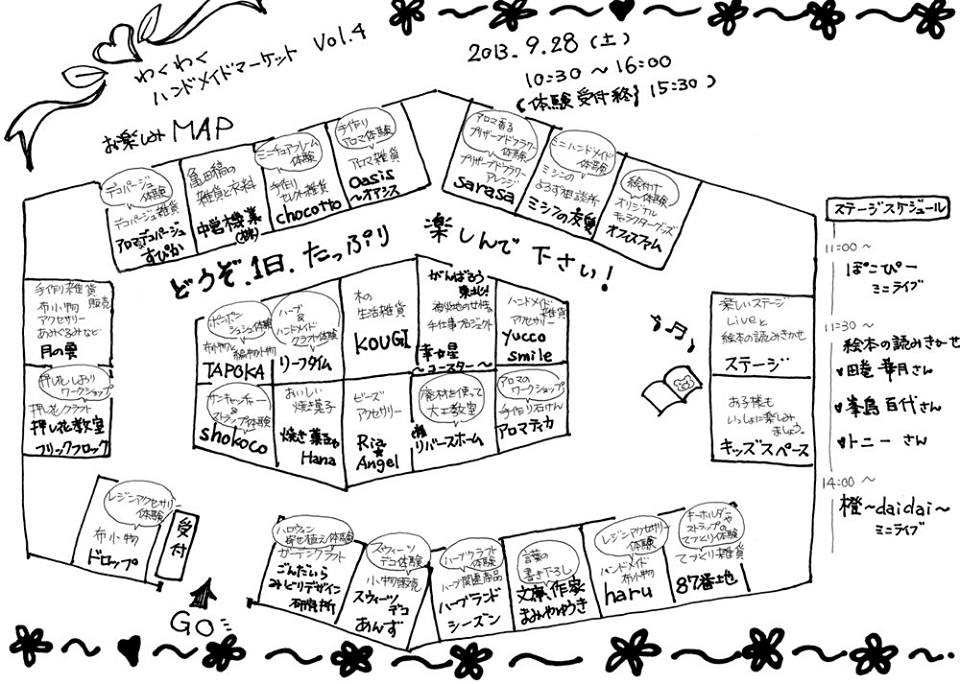 わくわく
ハンドメイドマーケット Vol.4
お楽しみMAP
2013.9.28(土)
10:30〜16:00
(体験受付終了 15:30)
デコパージュ
体験
デコパージュ雑貨
アロマ&デコパージュ
すぴか
亀田縞の
雑貨と衣料
中営機業
(株)
ミニチュアフレーム
体験
手作り
セレクト雑貨
chocotto
手作り
アロマ体験
アロマ雑貨
oasis
〜オアシス
アロマ香る
プリザーブドフラワー
体験
プリザーブドフラワー
アレンジ
sarasa
ミニハンドメイド
体験
ミシンの
よろず相談所
ミシンの友愛
絵付け
体験
オリジナル
キャラクターグッズ
オフィスファム
どうぞ、1日、たっぷり 楽しんで下さい!
手作り雑貨
販売
布小物
アクセサリー
あみぐるみなど
月の雫
押し花しおり
ワークショップ
押し花クラフト
押し花教室
フリックフロック
ポンポン
シュシュ体験
布小物と
編み物小物
TAPOKA
ハーブ
&
ハンドメイド
クラフト体験
リーフタイム
木の
生活雑貨
KOUGI
がんばろう
東北!
被災地の女性
手仕事プロジェクト
幸女星
〜コースター〜
ハンドメイド
雑貨
アクセサリー
yucco
smile
サンキャッチャー
&
ストラップ体験
shokoco
おいしい
焼き菓子
焼き菓子や
Hana
ビーズ
アクセサリー
Ria★
Angel
廃材を使って
大工教室
リバースホーム
アロマの
ワークショップ
手作り石けん
アロマティカ
楽しいステージ
Liveと
絵本の読みきかせ
ステージ
お子様も
いっしょに楽しみ
ましょう。
キッズスペース
ステージスケジュール
11:00〜
ぽこぴー
ミニライブ
11:30〜
絵本の読みきかせ
♥田巻 華月さん
♥峯島 百代さん
♥トニーさん
14:00〜
橙〜daidai〜
ミニライブ
レジンアクセサリー
体験
布小物
ドロップ
受付
GO
ハロウィン
寄せ植え体験
ガーデンクラフト
ごんだいら
みどりデザイン
研究所
スウィーツ
デコ体験
小物販売
スウィーツ
デコ
あんず
ハーブクラフト
体験
ハーブ関連商品
ハーブランド
シーズン
言葉の
書き下ろし
文庫、作家
まみやゆうき
レジンアクセサリー
体験
ハンドメイド
布小物
haru
キーホルダー
ストラップの
てづくり体験
てづくり雑貨
87番地